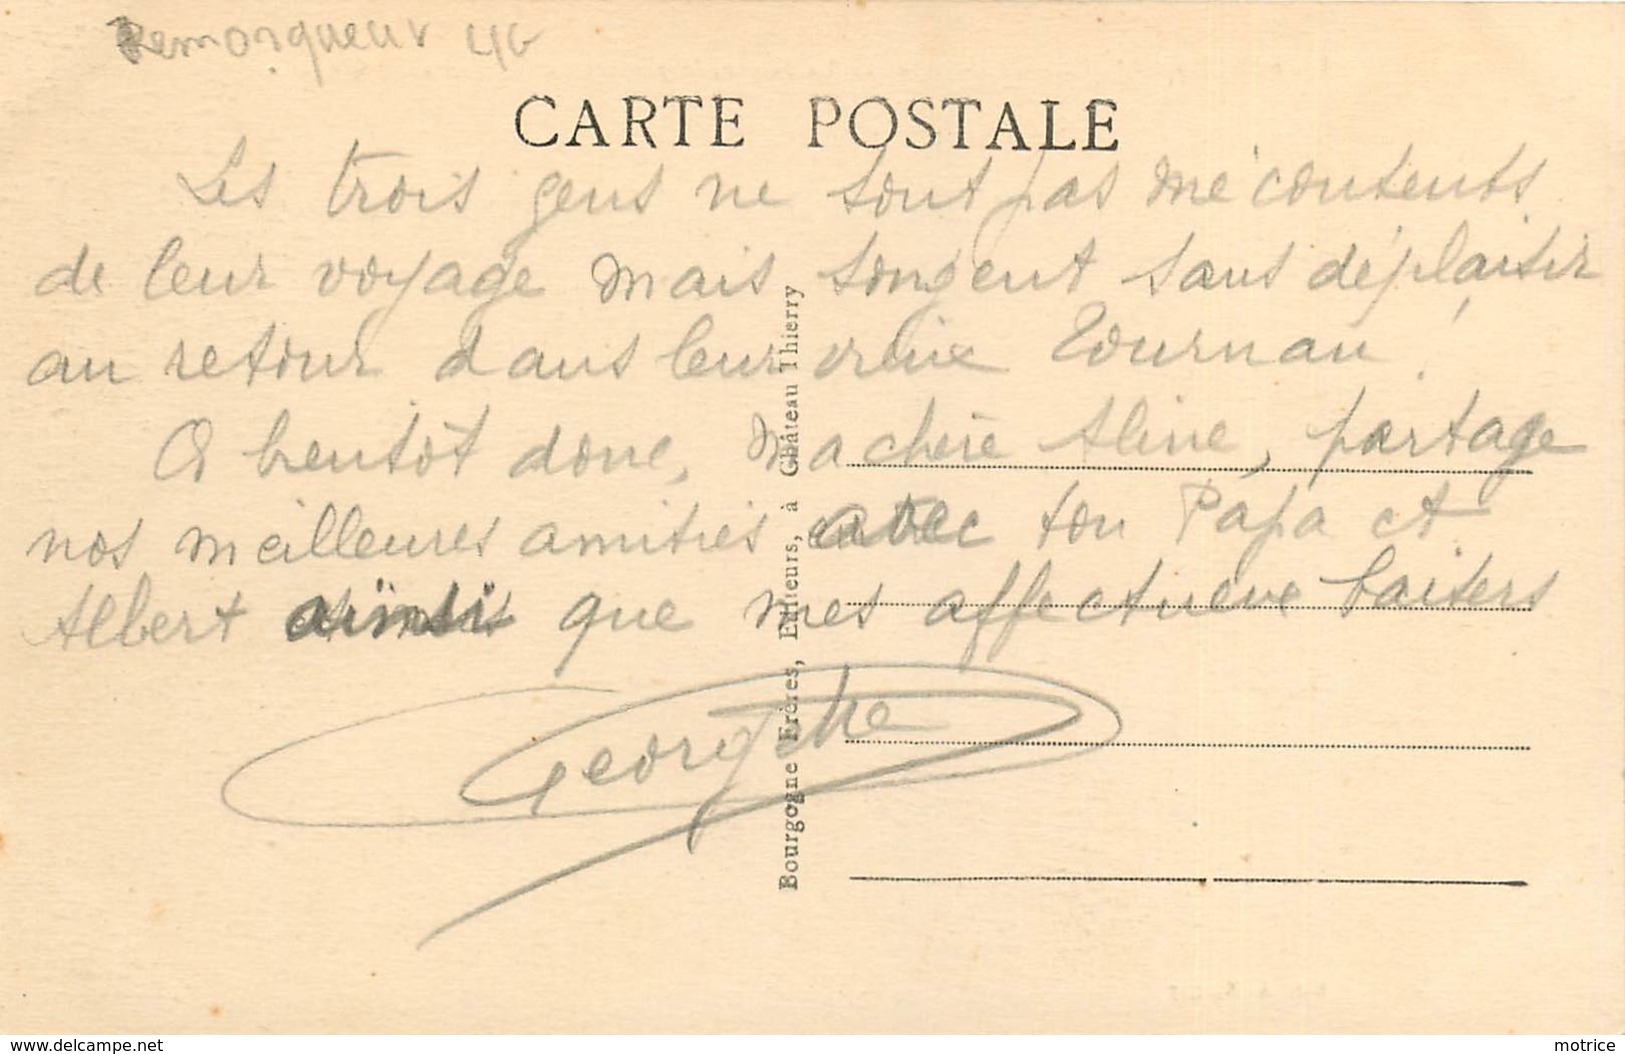 Remorqueur 4G
CARTE POSTALE
Les trois gens ne sont pas mécontents
de leur voyage mais songent sans déplaisir
au retour dans leur vieux Tournan !
A bientôt donc, Ma chère Aline, partage
nos meilleures amitiés avec ton Papa et
Albert ainsi que mes affectueux baisers
Georgette
Bourgogne Frères, Editeurs, à Château Thierry
www.delcampe.net
motrice